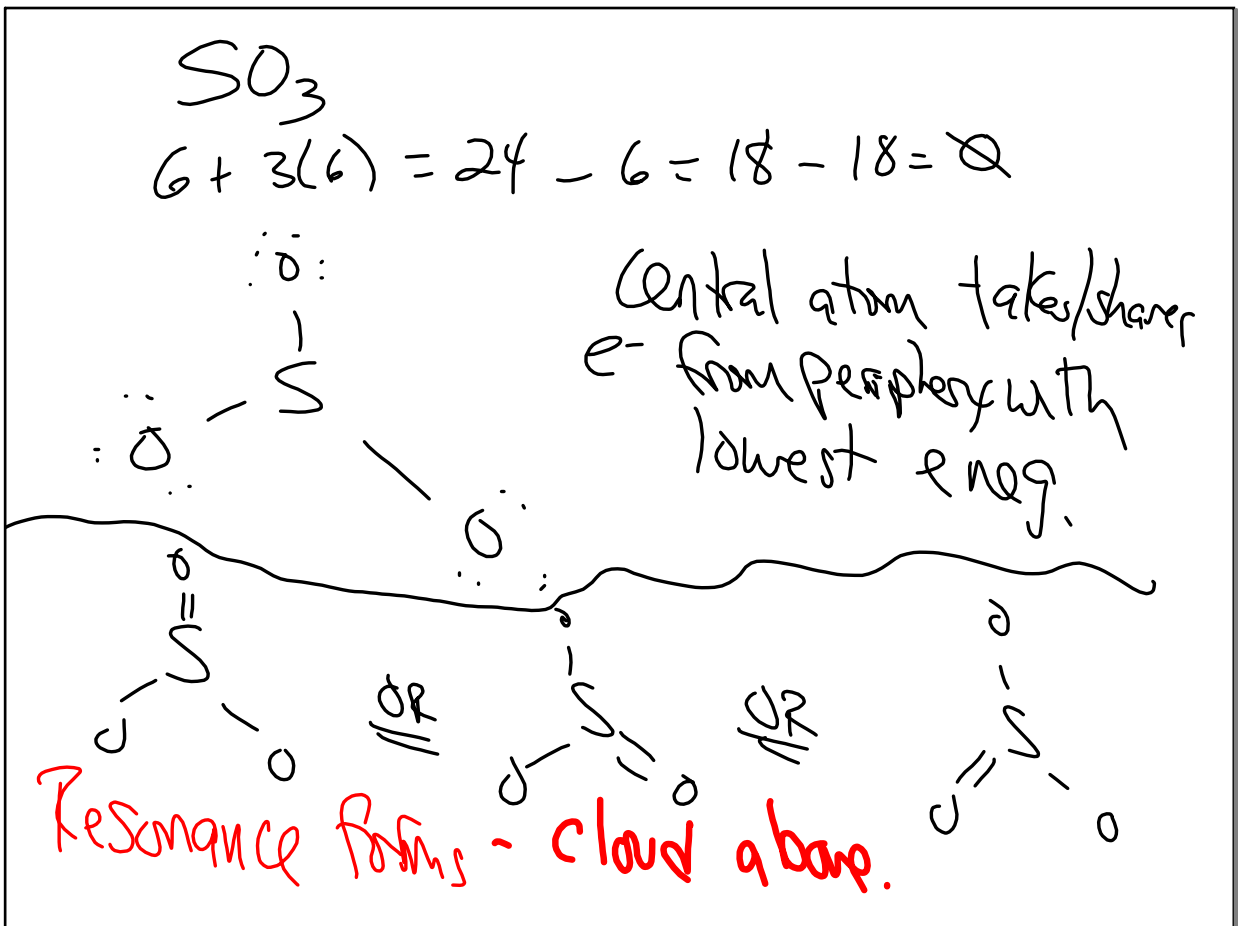 SO3
6 + 3(6) = 24 - 6 = 18 - 18 = 0
:O:
S
:O
O
Central atom takes/shares
e- from periphery with
lowest eneg.
O
S
O
O
OR
O
S
O
O
OR
O
S
O
O
Resonance forms - cloud above.